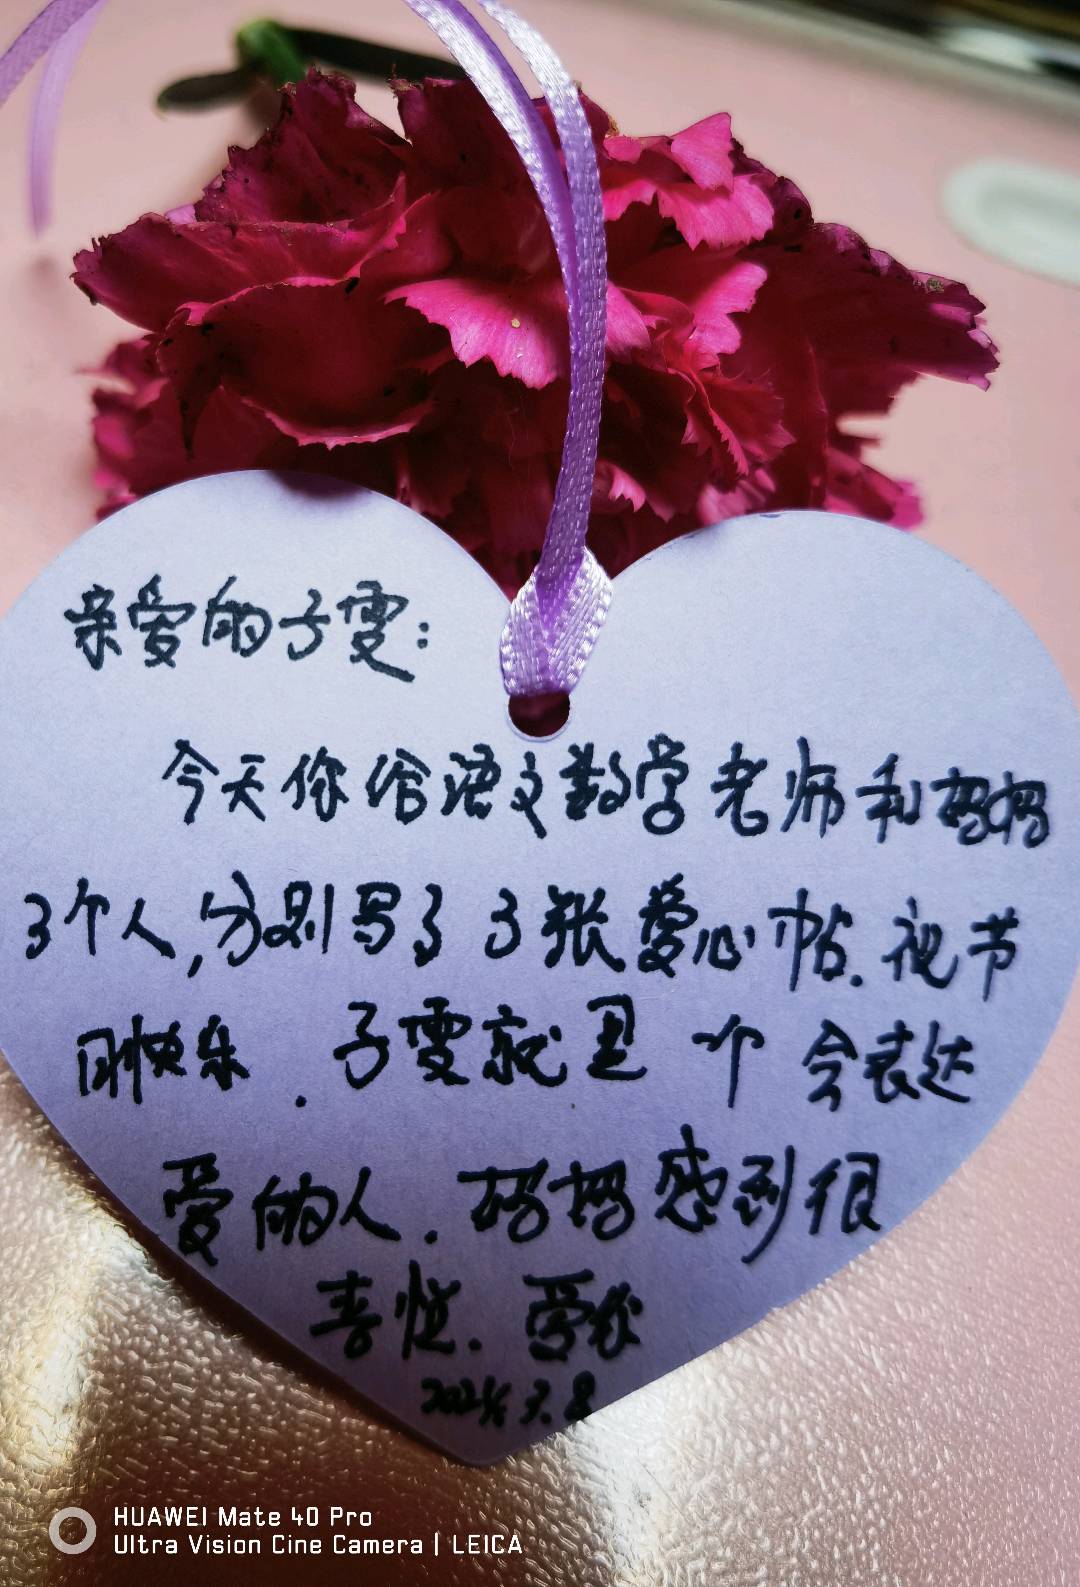 亲爱的子雯:
今天你给语文数学老师和妈妈
3个人,分别写了3张爱心帖.祝节
日快乐.子雯就是一个会表达
爱的人.妈妈感到很
喜悦.爱你
2024.3.8
HUAWEI Mate 40 Pro
Ultra Vision Cine Camera | LEICA